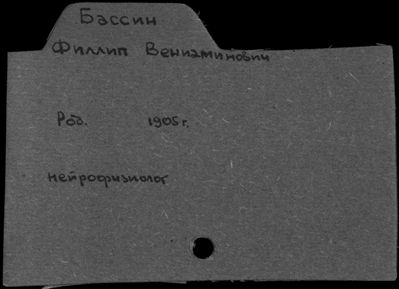 Бассин
Филлип Вениаминович
Род. 1905г.
нейрофизиолог